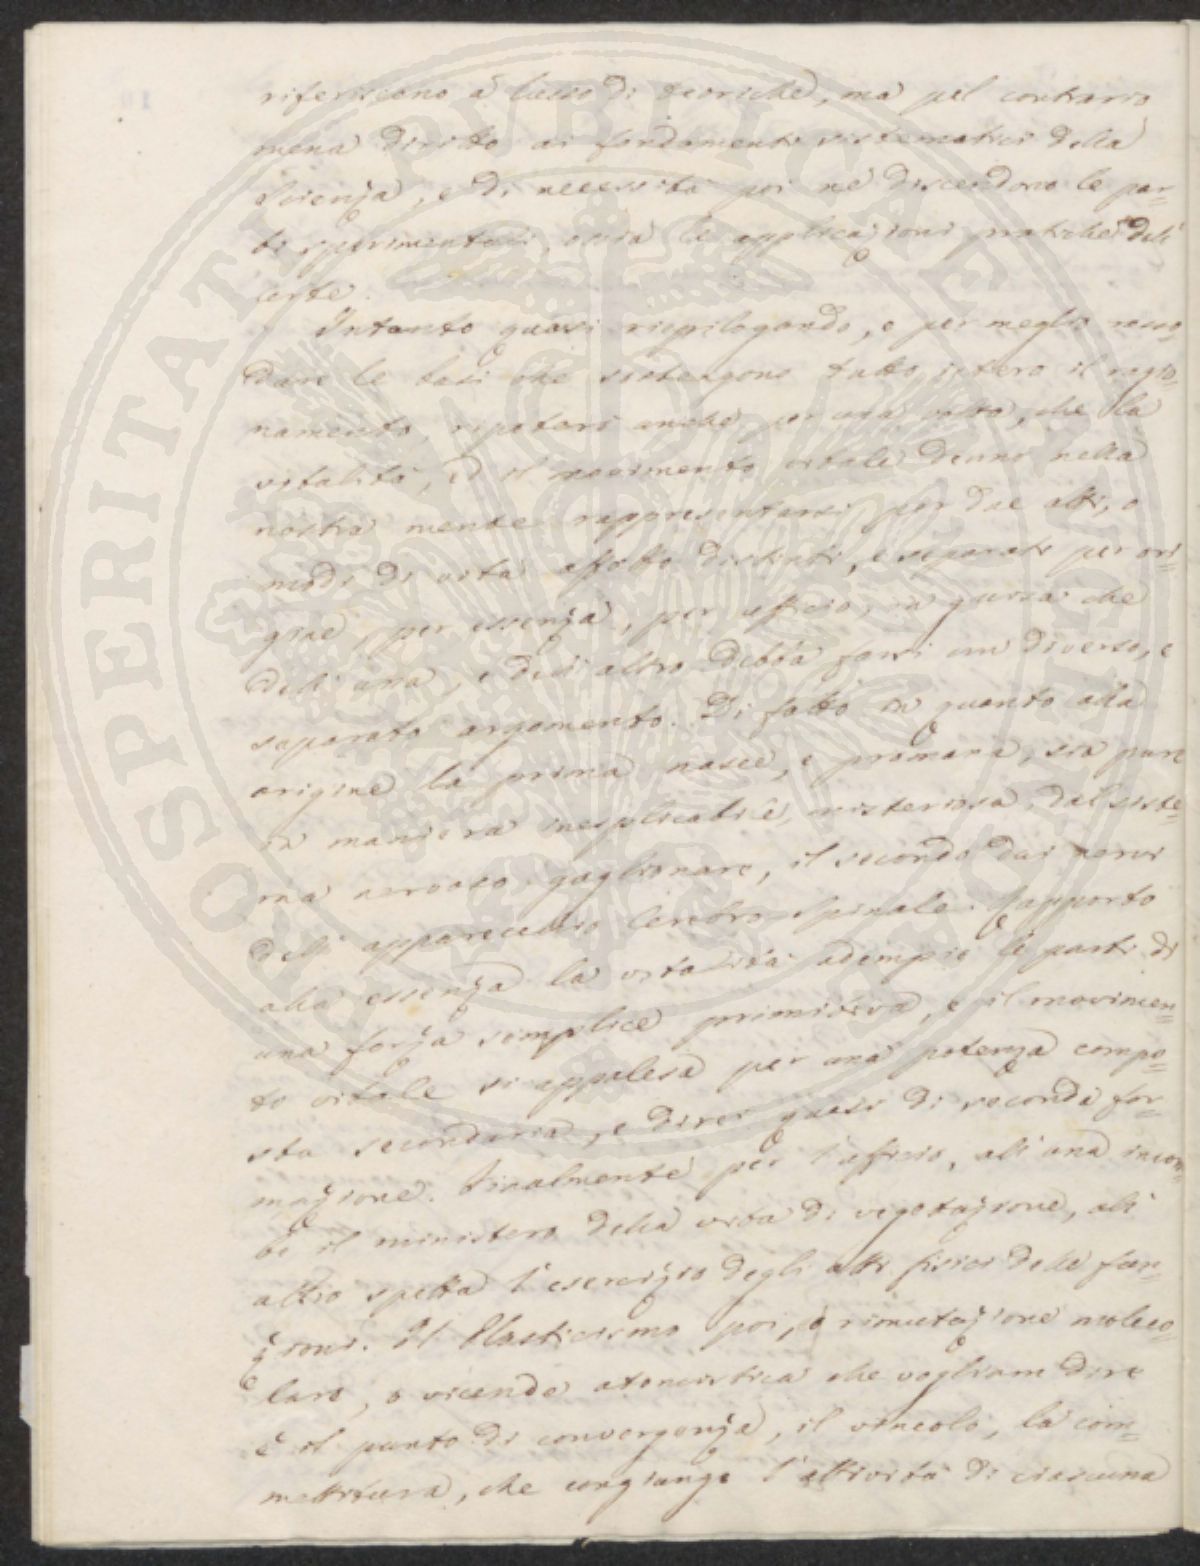 riferiscono a lusso di teoriche, ma pel contrario
mena diritto ai fondamenti sistematici della
Scienza, e di necessità poi ne discendono le par=
ti sperimentali, ossia le applicazioni pratiche dell'
arte.
Intanto quasi riepilogando, e per meglio rasso=
dare le basi che sostengono tutto intero il ragio=
namento, ripetasi anche per una volta, che la
vitalità, ed il movimento vitale denno nella
nostra mente rappresentarsi per due atti, o
modi di vita affatto distinti, e separati per ori=
gine, per essenza, per officio, in guisa che
dell'una, e dell'altro debba farsi un diverso, e
separato argomento. Di fatto in quanto alla
origine la prima nasce, e promana, sia pure
in maniera inesplicabile, misteriosa, dal siste=
ma nervoso-ganglionare, il secondo dai nervi
dell'apparecchio Cerebro-Spinale. Rapporto
alla essenza la vitalità adempie le parti di
una forza semplice primitiva, e il movimen=
to vitale si appalesa per una potenza compo=
sta secondaria, e direi quasi di seconda for=
mazione. Finalmente per l'officio, all'una incom=
be il ministero della vita di vegetazione, all'
altro spetta l'esercizio degli atti fisici delle fun=
zioni. Il Plasticismo poi, o rimutazione moleco=
lare, o vicenda atomistica che vogliam dire
è il punto di convergenza, il vincolo, la com=
mettitura, che congiunge l'attività di ciascuna
PROSPERITATI PUBLICAE